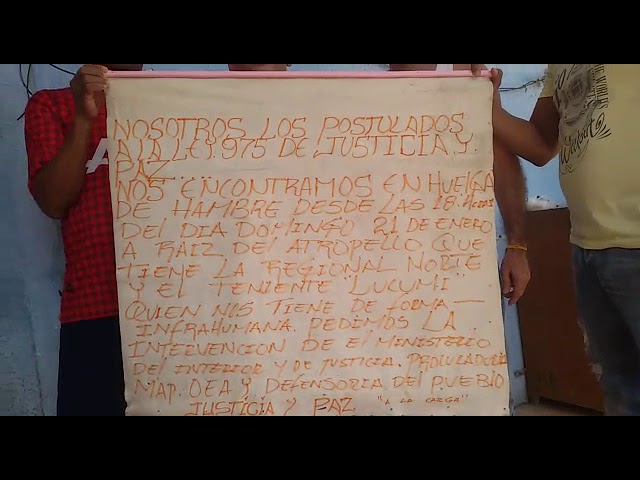 NOSOTROS LOS POSTULADOS
A LA LEY. 975 DE JUSTICIA Y.
PAZ
NOS ENCONTRAMOS EN HUELGA
DE HAMBRE DESDE LAS 18. HORAS
DEL DIA DOMINGO 21 DE ENERO
A RAIZ DEL ATROPELLO QUE
TIENE LA REGIONAL NORTE
Y EL TENIENTE "LUCUMI"
QUIEN NOS TIENE DE FORMA
INFRAHUMANA. PEDIMOS LA
INTERVENCION DE EL MINISTERIO
DEL INTERIOR Y DE JUSTICIA. PROCURADURIA
MAP. OEA Y DEFENSORIA DEL PUEBLO
JUSTICIA Y PAZ "A LA CARGA"